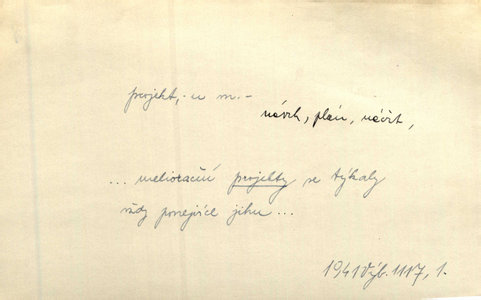 projekt, -u m. -
návrh, plán, náčrt,
... meliorační projekty se týkaly
vždy ponejvíce jihu ...
1941 Výb. 1117, 1.